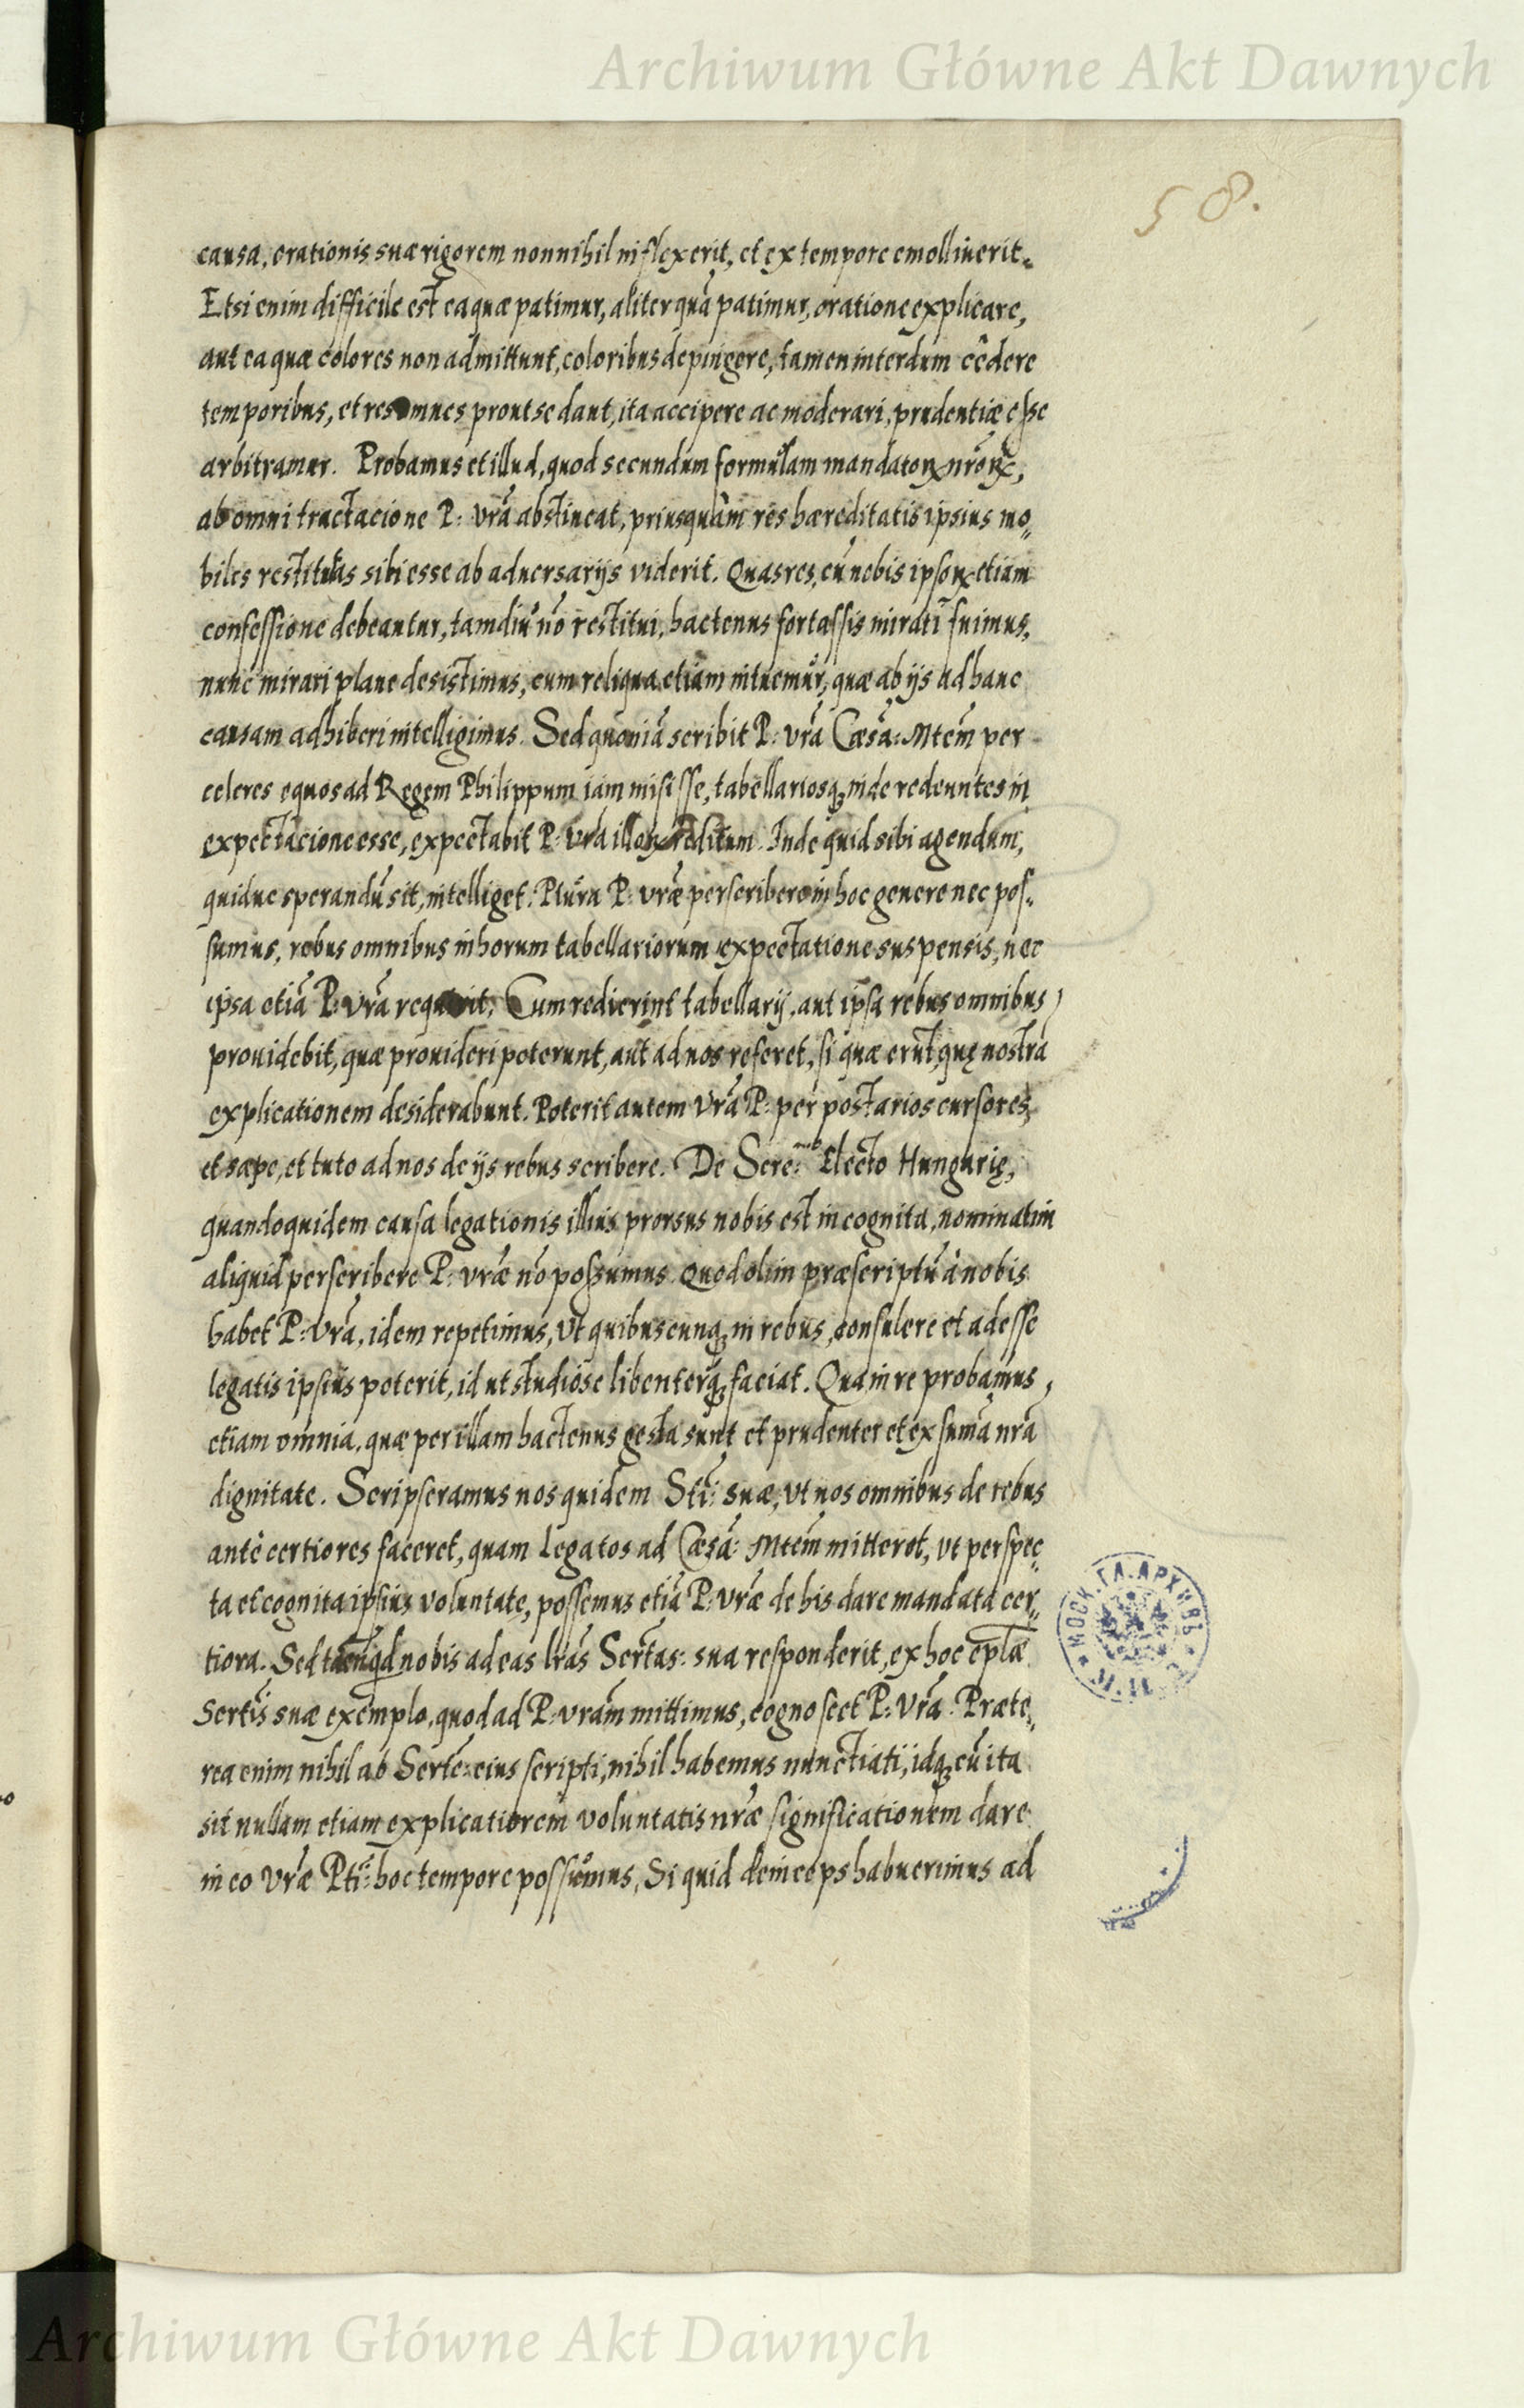 Archiwum Główne Akt Dawnych
58.
causa, orationis suæ rigorem nonnihil inflexerit, et ex tempore emolliuerit.
Etsi enim difficile est ea quæ patimur, aliter quã patimur, oratione explicare,
aut ea quæ colores non admittunt, coloribus depingere, tamen interdum cêdere
temporibus, et res omnes prout se dant, ita accipere ac moderari, prudentiæ esse
arbitramur. Probamus et illud, quod secundum formulam mandatoꝝ nrõꝝ,
ab omni tractacione P: vrã abstineat, priusquàm res hæreditatis ipsius mo„
biles restitutas sibi esse ab aduersarijs viderit. Quas res, cũ nobis ipsoꝝ etiam
confessione debeantur, tamdiu nõ restitui, hactenus fortassis mirati fuimus,
nunc mirari plane desistimus, cum reliqua etiam intuemur, quæ ab ijs ad hanc
causam adhiberi intelligimus. Sed quoniã scribit P: vrã Cæsã: Mtem̃ per
celeres equos ad Regem Philippum iam misisse, tabellariosqꝫ inde redeuntes in
expectacione esse, expectabit P: vrã illoꝝ reditum. Inde quid sibi agendum,
quidue sperandũ sit, intelliget. Plura P: vræ̃ perscribere in hoc genere nec pos„
sumus, rebus omnibus in horum tabellariorum expectatione suspensis, nec
ipsa etiã P: vrã requirit. Cum redierint tabellarij, aut ipsa rebus omnibus,
prouidebit, quæ prouideri poterunt, aut ad nos referet, si quæ erũt, quę nostra
explicationem desiderabunt. Poterit autem vrã P: per postarios cursores,
et sæpe, et tuto ad nos de ijs rebus scribere. De Sere:mo Electo Hungarię,
quandoquidem causa legationis illius prorsus nobis est incognita, nominatim
aliquid perscribere P: vræ̃ nõ possumus. Quod olim præscriptũ à nobis
habet P: vrã, idem repetimus, vt quibuscunqꝫ in rebus, consulere et adesse
legatis ipsius poterit, id ut studiose libenterqꝫ faciat. Qua in re probamus,
etiam omnia, quæ per illam hactenus gesta sunt et prudenter et ex sumã nrã
dignitate. Scripseramus nos quidem Sti: suæ, vt nos omnibus de rebus
antè certiores faceret, quam Legatos ad Cæsã: Mtem̃ mitteret, vt perspec„
ta et cognita ipsius voluntate, possemus etiã P: vræ̃ de his dare mandata cer„
tiora. Sed tamen qd nobis ad eas lrãs Sertas: sua responderit, ex hoc eplæ̃
Sertis̃ suæ exemplo, quod ad P: vram̃ mittimus, cognoscet P: vrã. Præte„
rea enim nihil ab Serte: eius scripti, nihil habemus nunctiati, idqꝫ cũ ita
sit nullam etiam explicatiorem voluntatis nræ̃ significationem dare
in eo vræ̃ Pti: hoc tempore possumus, Si quid deinceps habuerimus ad
МОСК. ГЛ. АРХИВЪ
Archiwum Główne Akt Dawnych